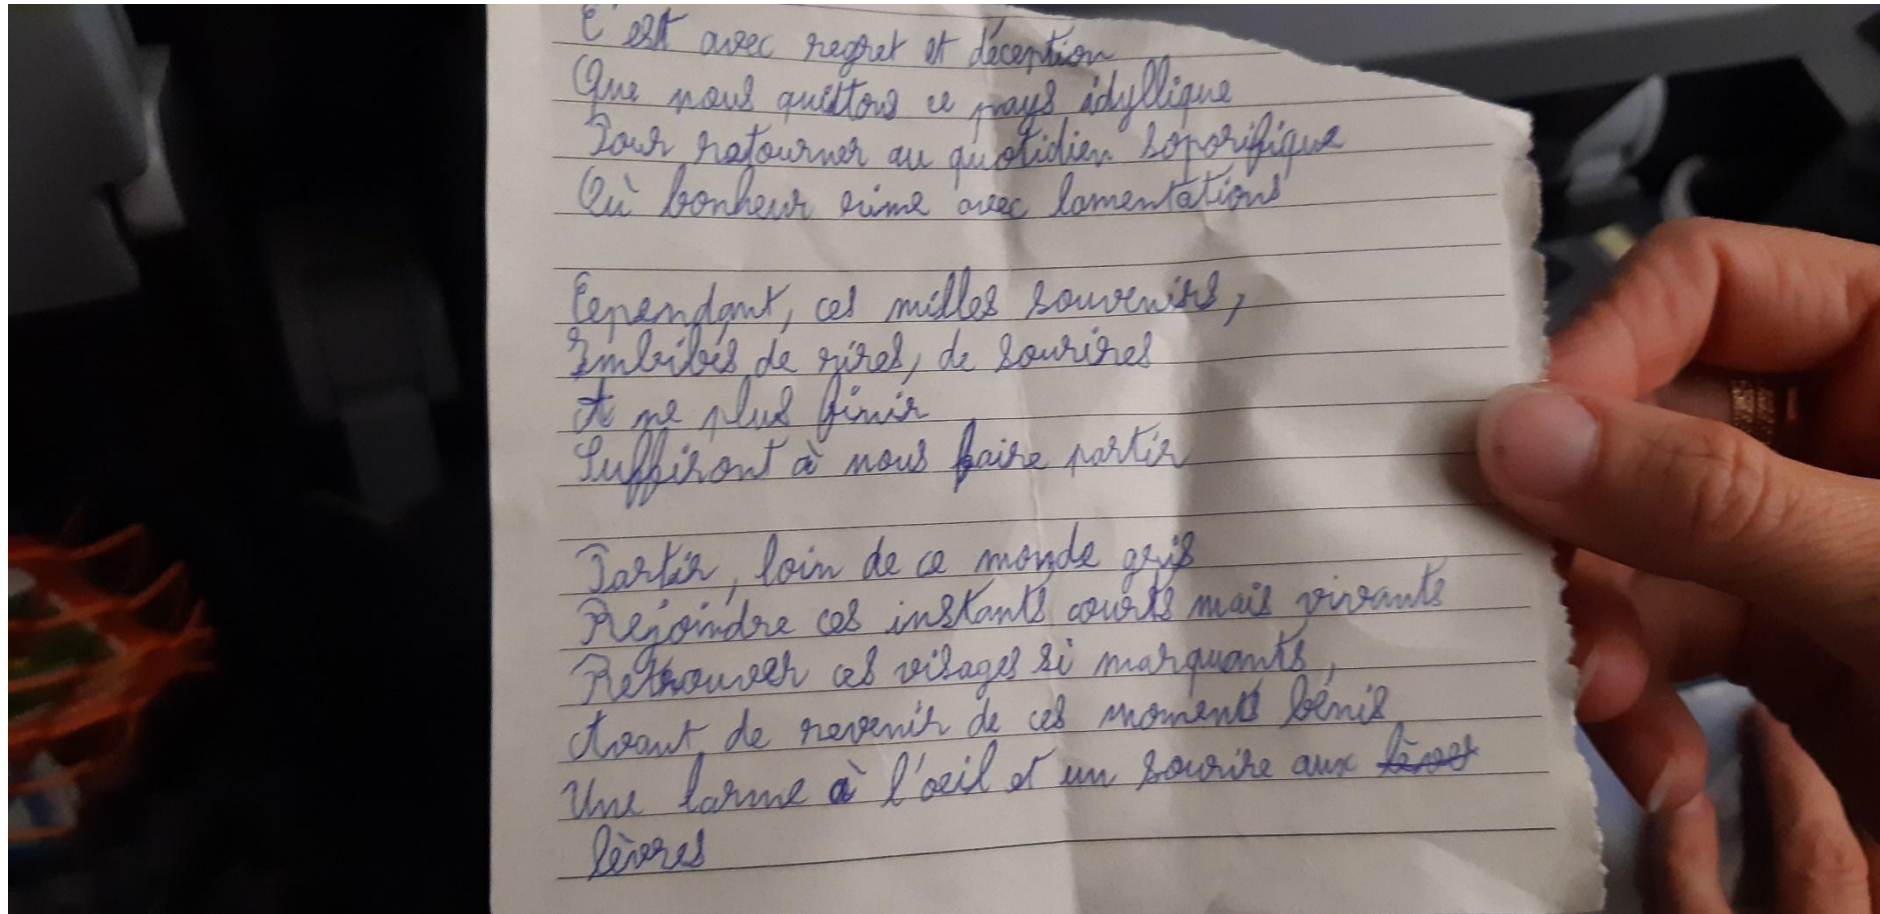 C'est avec regret et déception
Que nous quittons ce pays idyllique
Pour retourner au quotidien soporifique
Où bonheur rime avec lamentations
Cependant, ces milles souvenirs,
Imbibés de rires, de sourires
A ne plus finir
Suffiront à nous faire partir
Partir, loin de ce monde gris
Rejoindre ces instants courts mais vivants
Retrouver ces visages si marquants,
Avant de revenir de ces moments bénis
Une larme à l'oeil et un sourire aux
lèvres